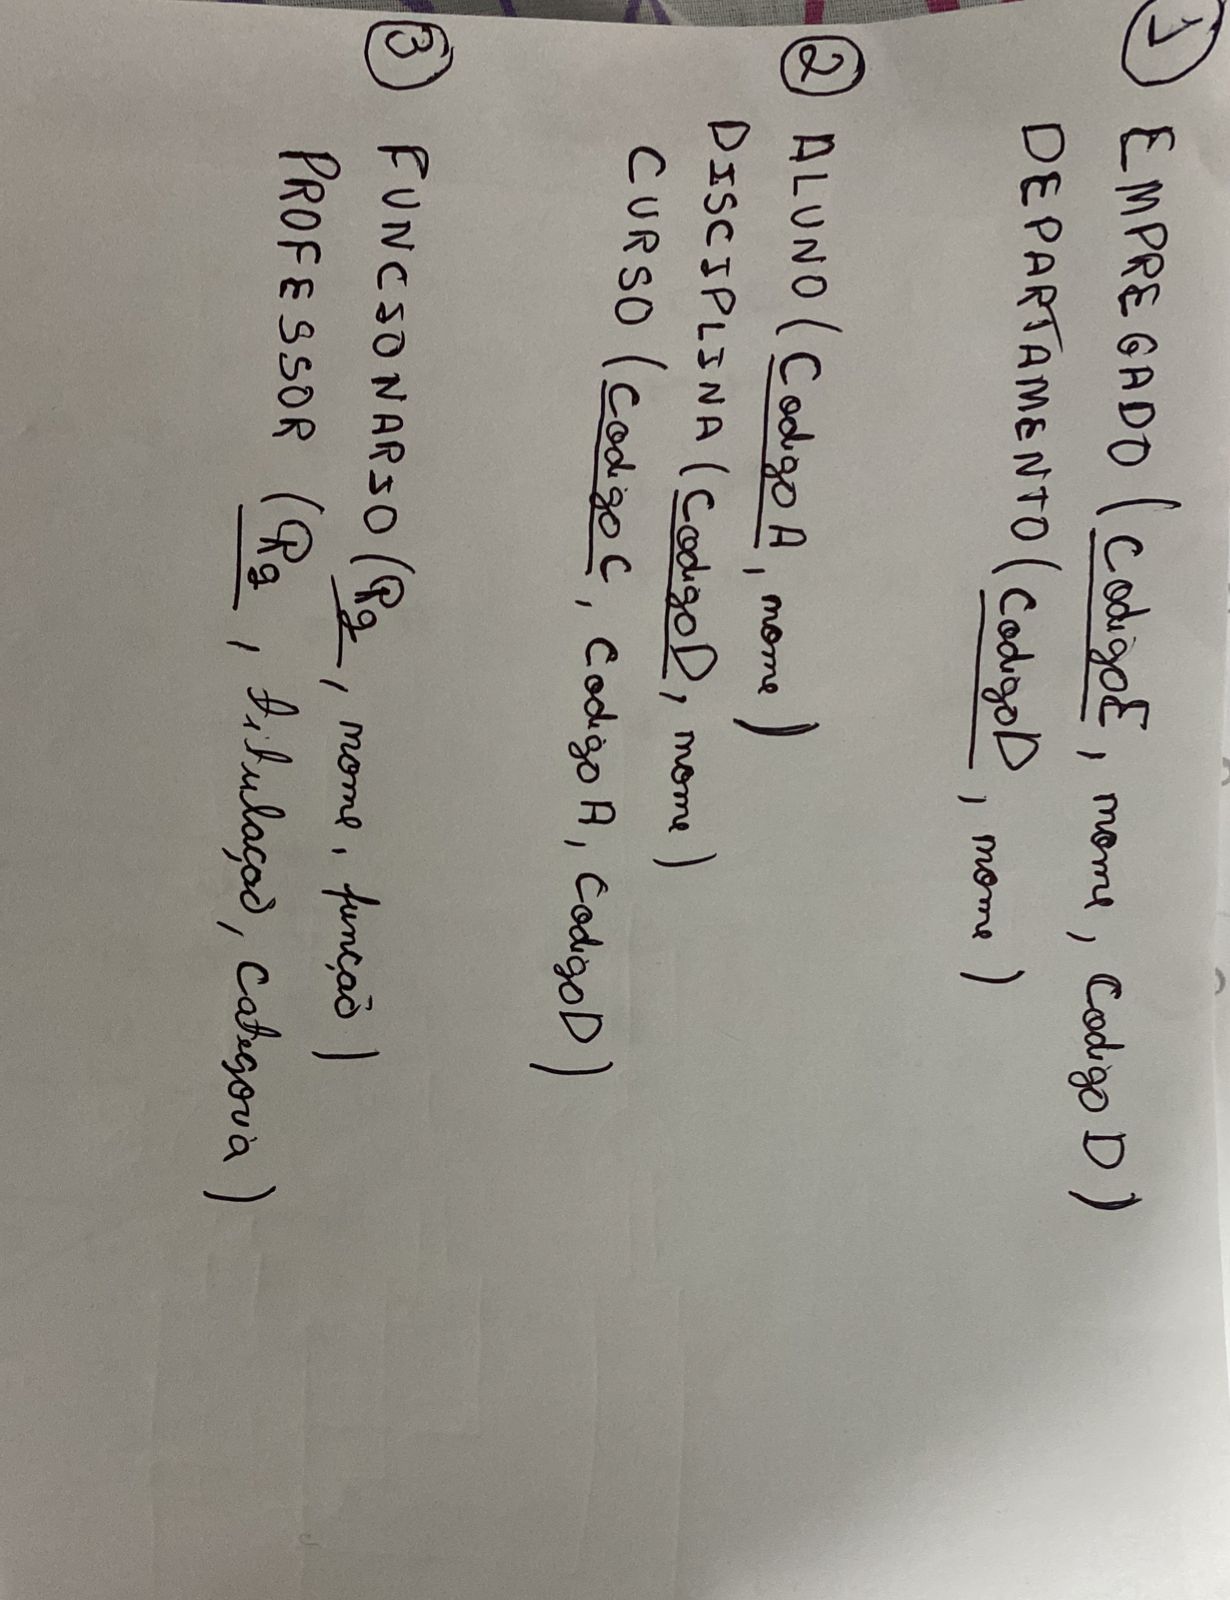 1 EMPREGADO (CodigoE, nome, CodigoD)
DEPARTAMENTO (CodigoD, nome)
2 ALUNO (CodigoA, nome)
DISCIPLINA (CodigoD, nome)
CURSO (CodigoC, CodigoA, CodigoD)
3 FUNCIONARIO (Rg, nome, função)
PROFESSOR (Rg, titulação, categoria)